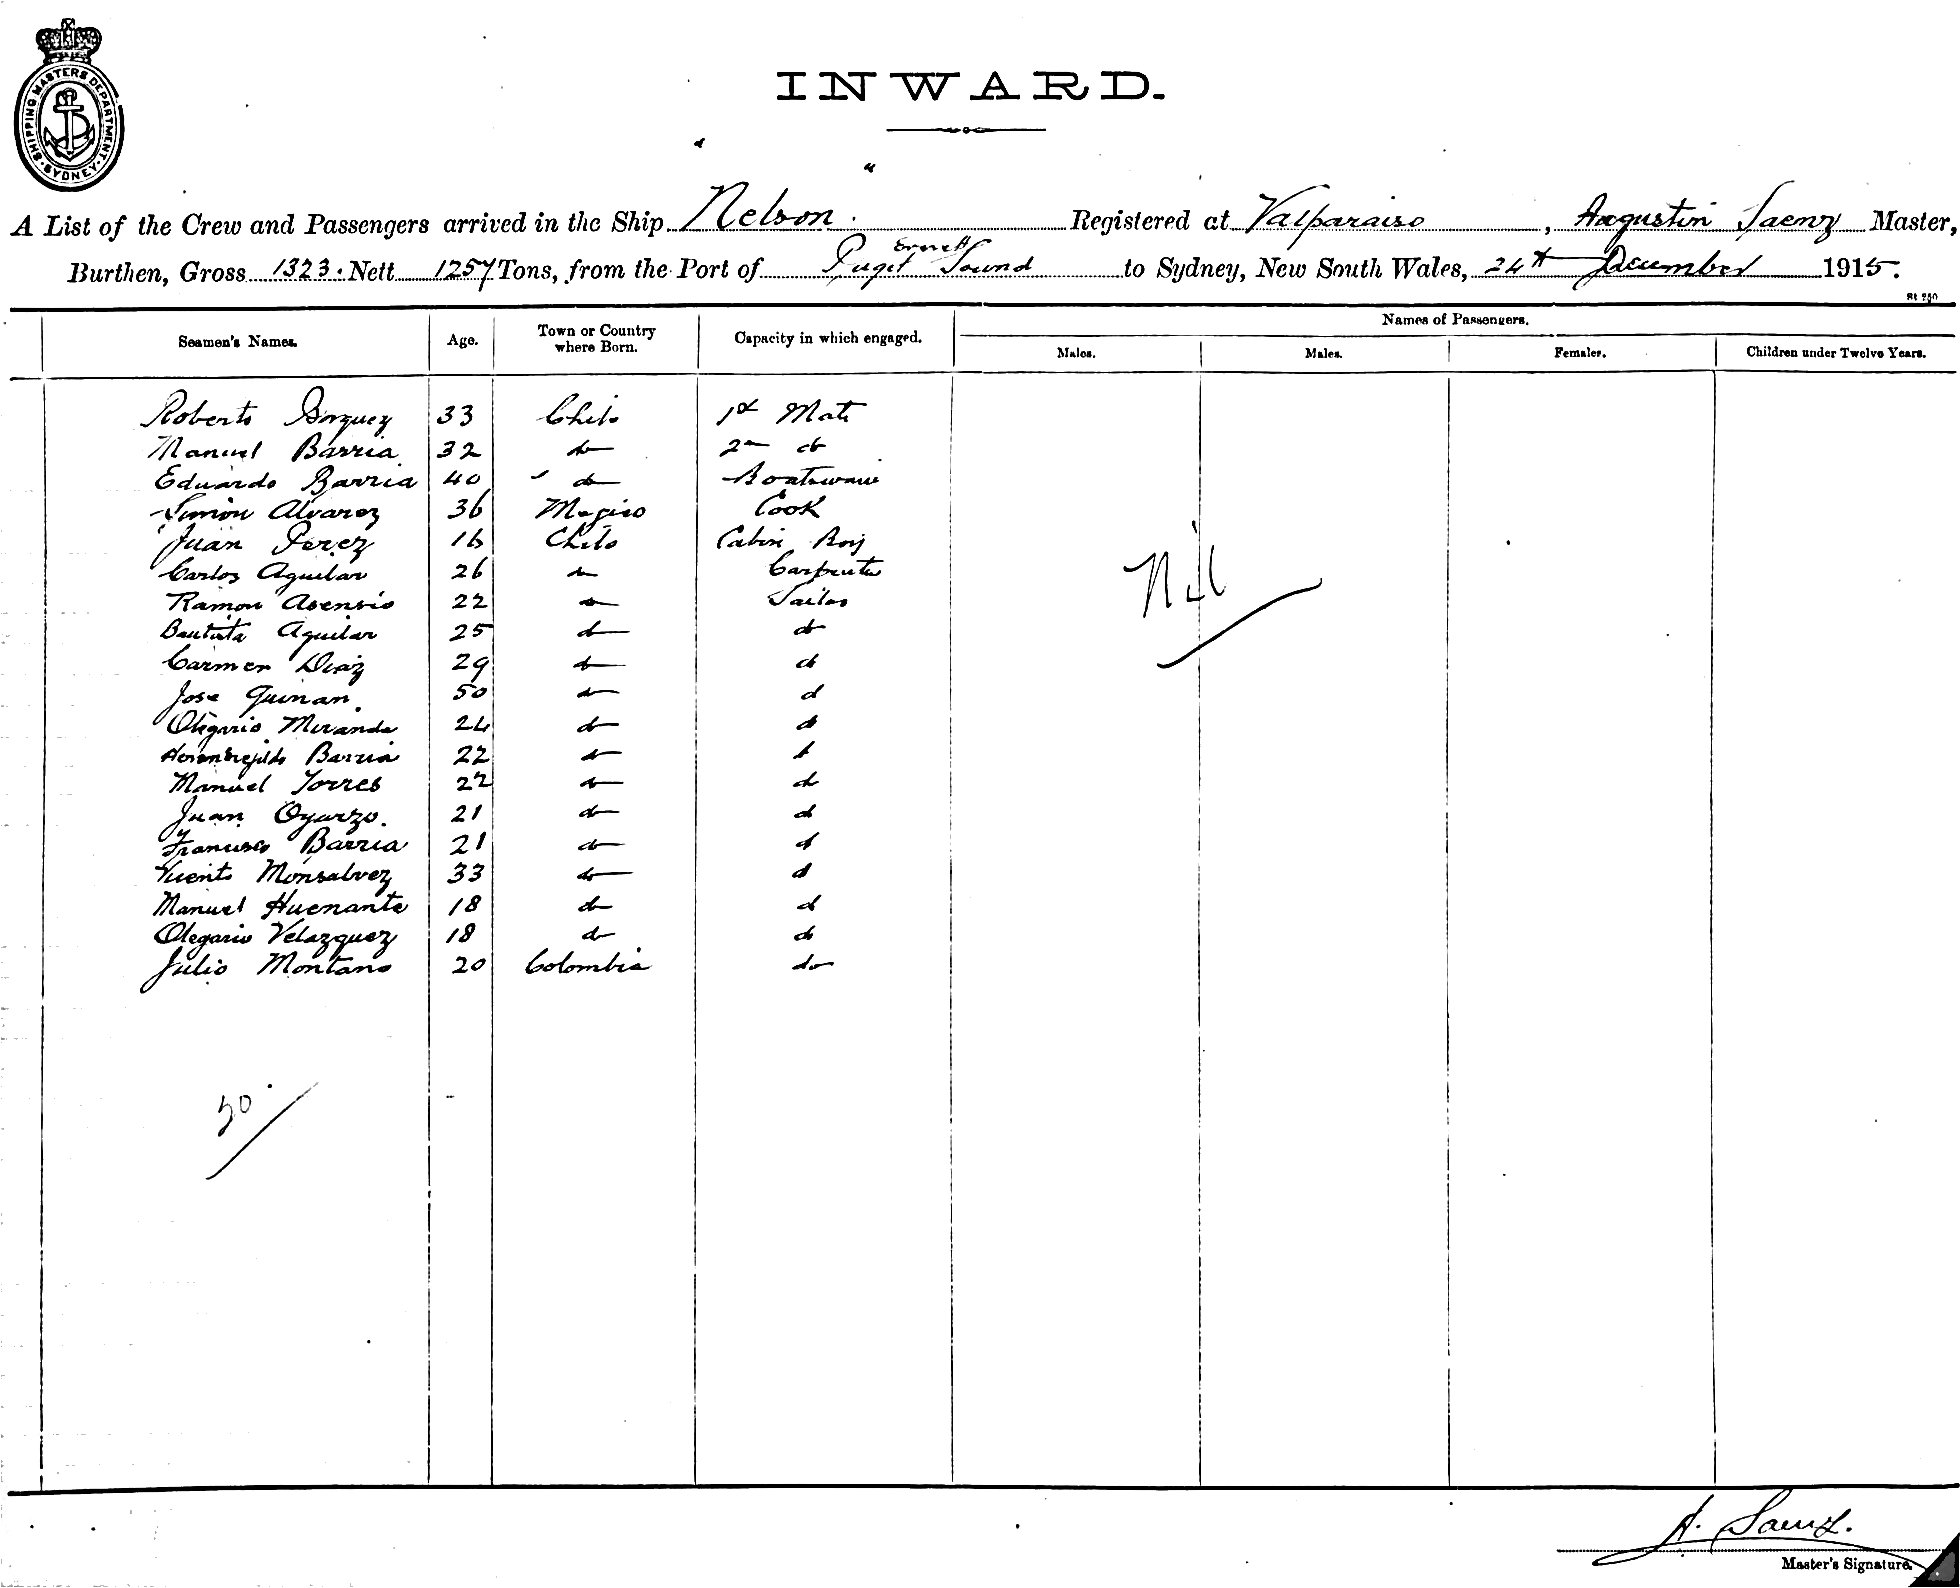 SHIPPING MASTERS DEPARTMENT · SYDNEY ·
INWARD.
A List of the Crew and Passengers arrived in the Ship Nelson. Registered at Valparaiso, Augustin Saenz Master,
Everett
Burthen, Gross 1323. Nett 1257 Tons, from the Port of Puget Sound to Sydney, New South Wales, 24th December 1915.
Seamen's Names. Age. Town or Country where Born. Capacity in which engaged. Names of Passengers.
Males. Males. Females. Children under Twelve Years.
Roberto Borquez 33 Chile 1st Mate
Manuel Barria 32 do 2nd do
Eduardo Barria 40 do Boatswain
Simon Alvarez 36 Mexico Cook
Juan Perez 16 Chile Cabin Boy
Carlos Aguilar 26 do Carpenter
Ramon Asensio 22 do Sailor
Bautista Aguilar 25 do do
Carmen Diaz 29 do do
Jose Guinan. 50 do do
Olegario Miranda 24 do do
Barria 22 do do
Manuel Torres 22 do do
Juan Oyarzo. 21 do do
Francisco Barria 21 do do
Vicente Monsalvez 33 do do
Manuel Huenante 18 do do
Olegario Velazquez 18 do do
Julio Montano 20 Colombia do
Nil
A. Saenz.
Master's Signature.